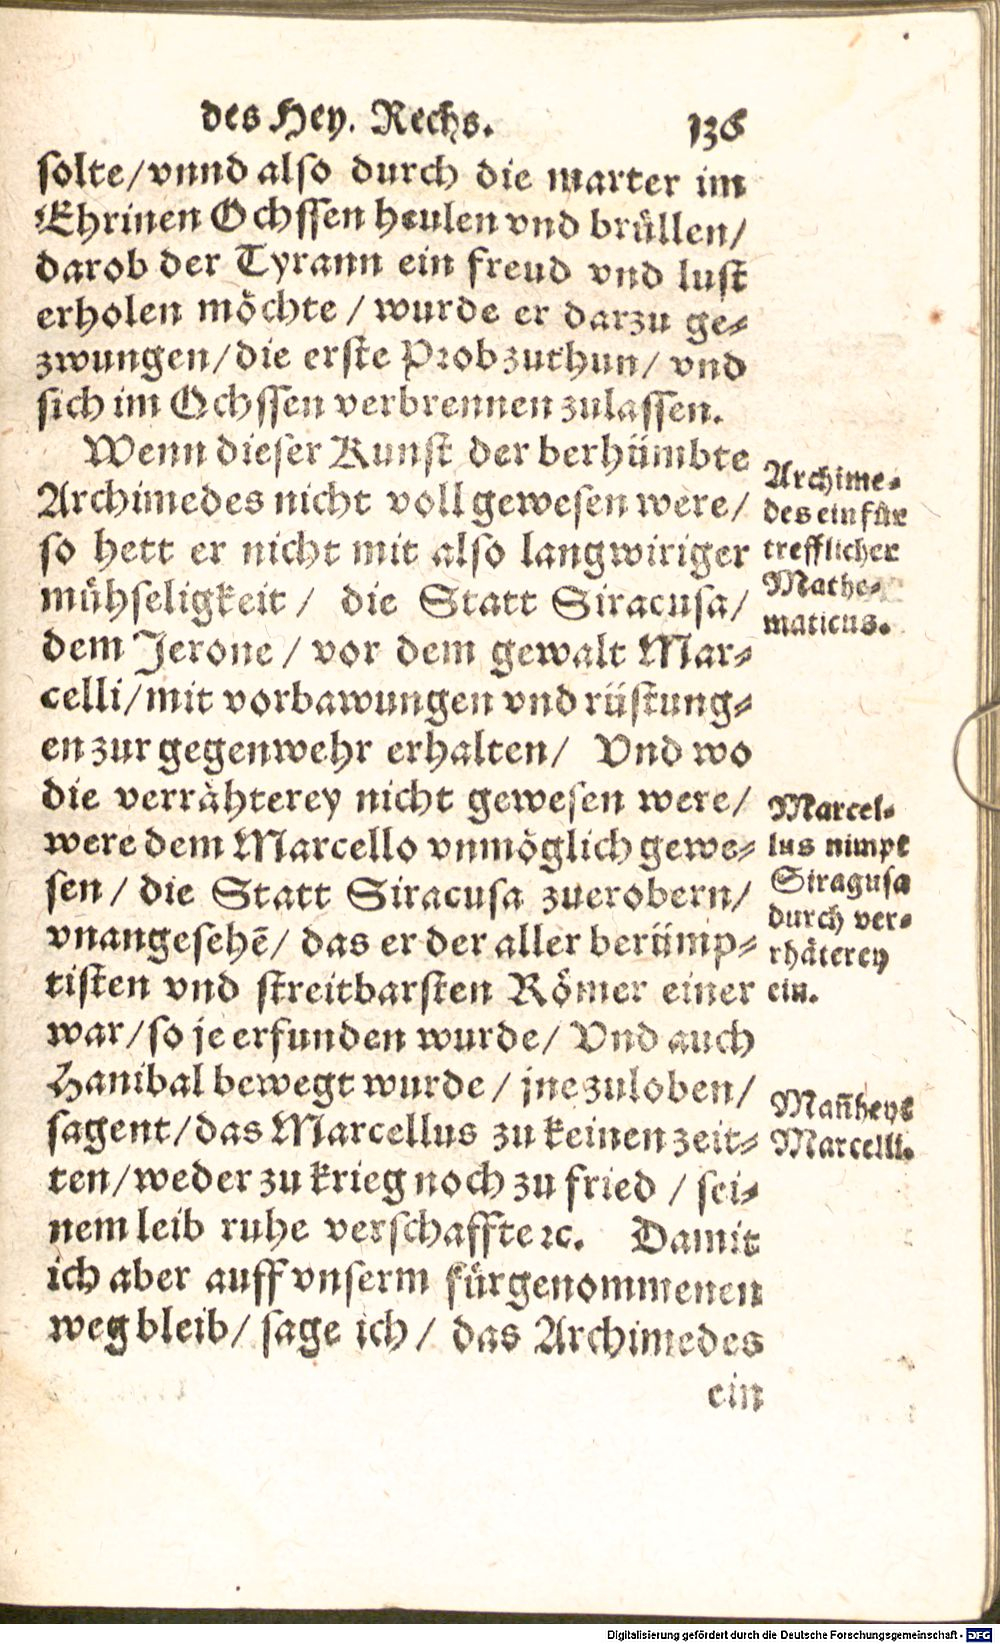 des Hey. Rechs. 136
solte/vnnd also durch die marter im
Ehrinen Ochssen heulen vnd brüllen/
darob der Tyrann ein freud vnd lust
erholen möchte / wurde er darzu ge-
zwungen/die erste Prob zuthun/ vnd
sich im Ochssen verbrennen zulassen.
Wenn dieser Kunst der berhümbte
Archimedes nicht voll gewesen were/
so hett er nicht mit also langwiriger
mühseligkeit / die Statt Siracusa/
dem Jerone / vor dem gewalt Mar-
celli/mit vorbawungen vnd rüstung-
en zur gegenwehr erhalten/ Vnd wo
die verrähterey nicht gewesen were/
were dem Marcello vnmöglich gewe-
sen / die Statt Siracusa zuerobern/
vnangesehē/ das er der aller berümp-
tisten vnd streitbarsten Römer einer
war/so je erfunden wurde/ Vnd auch
Hanibal bewegt wurde / jne zuloben/
sagent/das Marcellus zu keinen zeit-
ten/weder zu krieg noch zu fried / sei-
nem leib ruhe verschaffte ꝛc. Damit
ich aber auff vnserm fürgenommenen
weg bleib/ sage ich / das Archimedes
ein
Archime-
des ein für
trefflicher
Mathe-
maticus.
Marcel-
lus nimpt
Siragusa
durch ver-
rhäterey
ein.
Mañheyt
Marcelli.
Digitalisierung gefördert durch die Deutsche Forschungsgemeinschaft - DFG